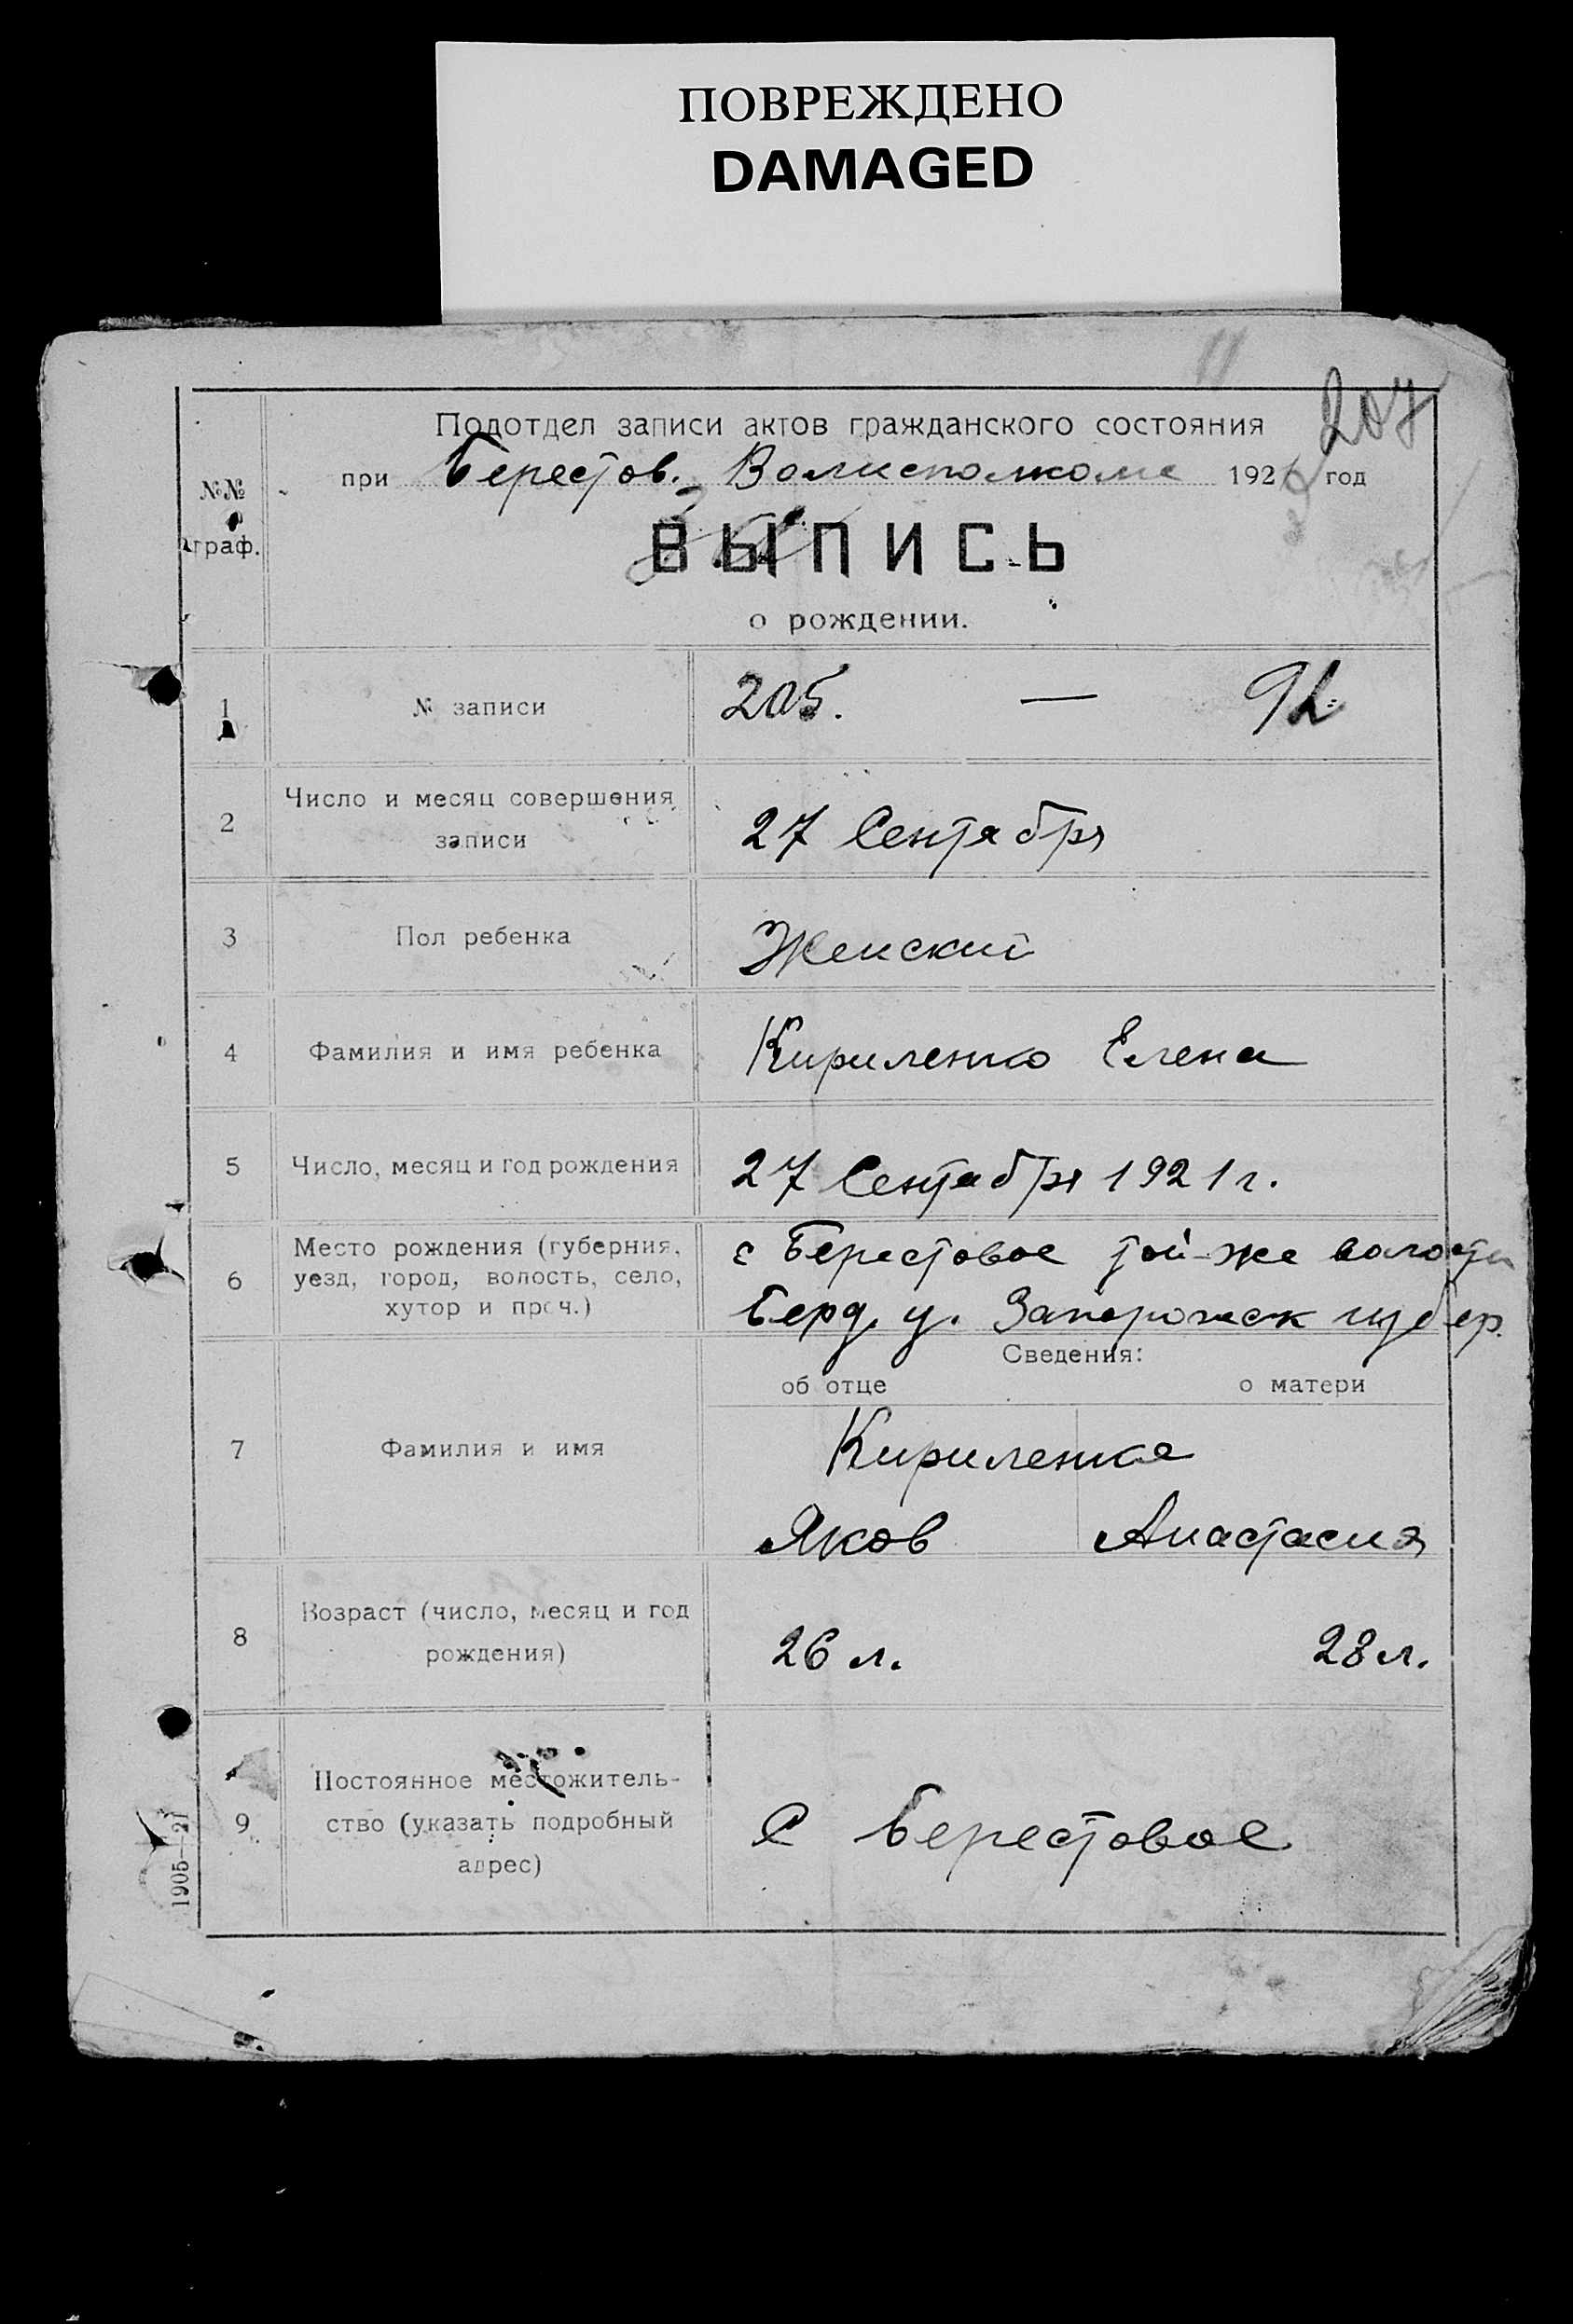 ПОВРЕЖДЕНО
DAMAGED
207
Подотдел записи актов гражданского состояния
при Берестов. Волисполкоме 192 год
№№
граф.
ВЫПИСЬ
о рождении.
1 № записи 205. — 92
2 Число и месяц совершения
записи 27 Сентября
3 Пол ребенка Женский
4 Фамилия и имя ребенка Кириленко Елена
5 Число, месяц и год рождения 27 Сентября 1921 г.
6 Место рождения (губерния,
уезд, город, волость, село,
хутор и проч.)
с Берестовое той-же волости
Берд. у. Запорожск губер.
Сведения:
об отце о матери
7 Фамилия и имя Кириленко
Яков Анастасия
8 Возраст (число, месяц и год
рождения) 26 л. 28 л.
9 Постоянное местожитель-
ство (указать подробный
адрес)
С Берестовое
1905—21